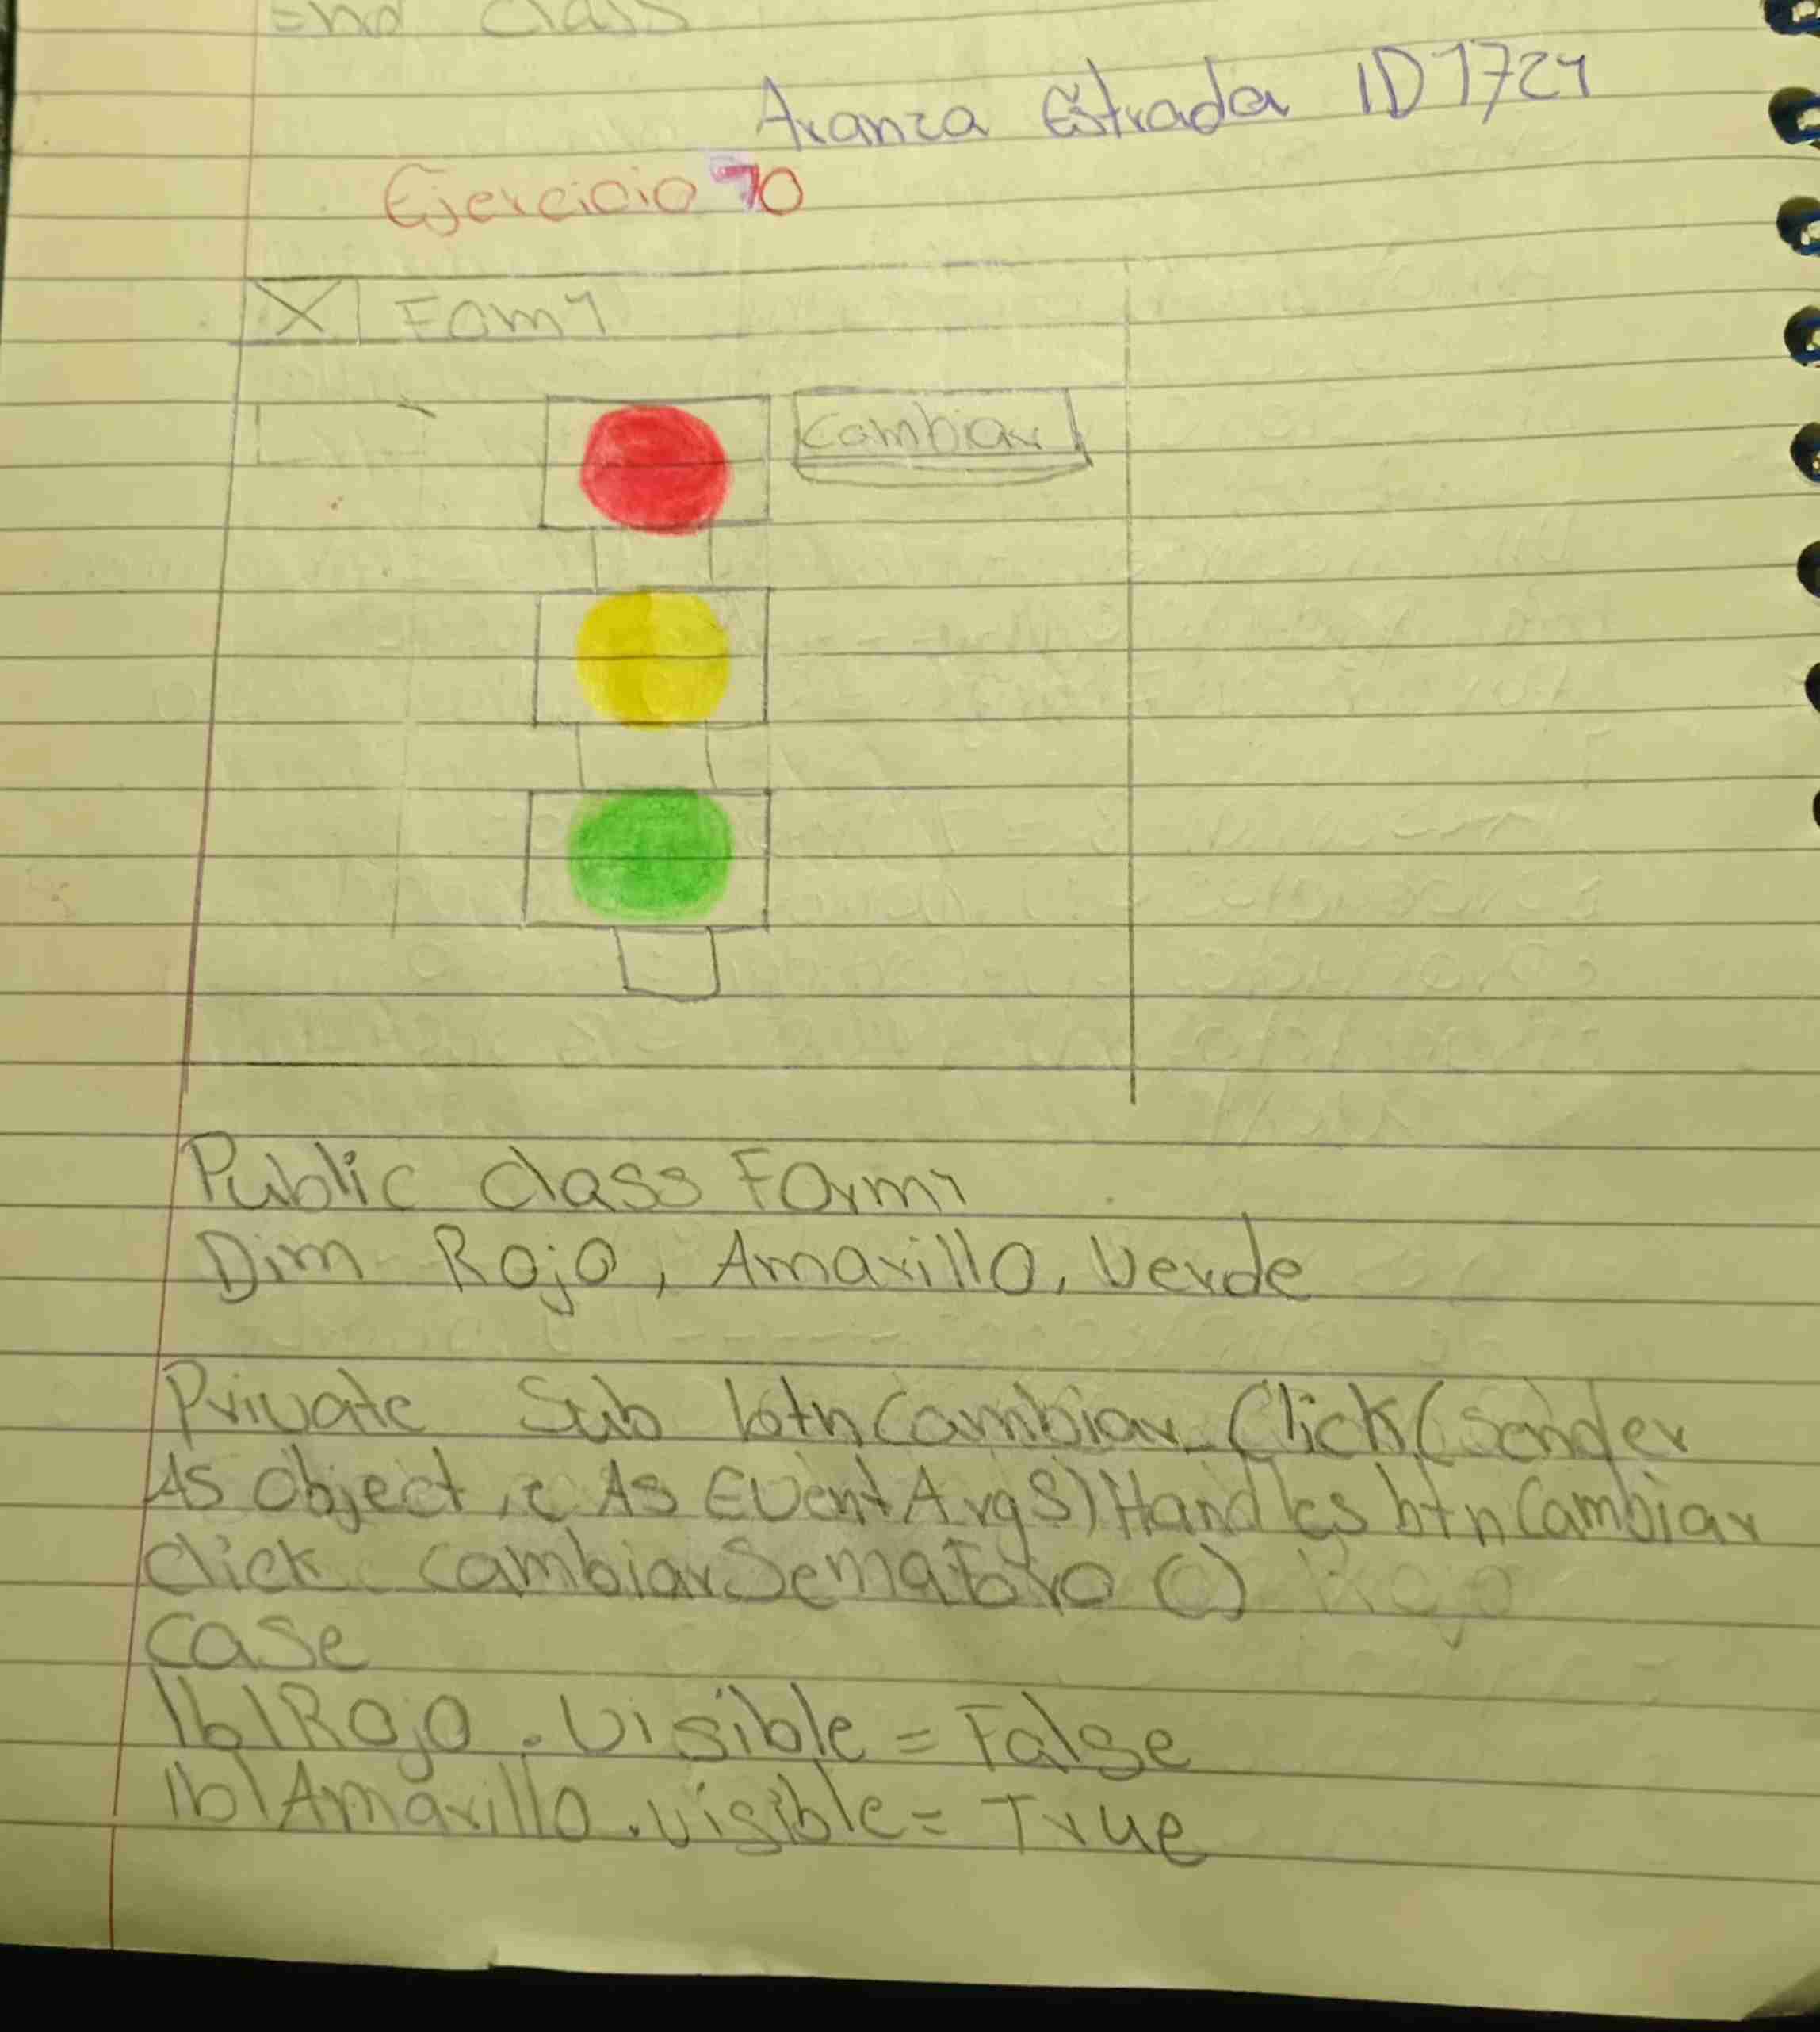 End Class
Aranza Estrada ID1724
Ejercicio 10
X Fom1
Cambiar
Public class Form1
Dim Rojo, Amarillo, Verde
Private Sub btnCambiar_Click(sender
As Object, e As EventArgs) Handles btnCambiar
Click cambiarSemaforo () Rojo
case
lblRojo.Visible = False
lblAmarillo.visible = True